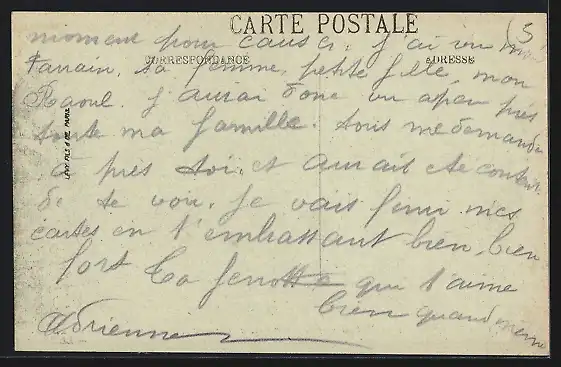 CARTE POSTALE
(5
moment pour causer. J'ai vu mon
CORRESPONDANCE
ADRESSE
Parrain, sa femme, petite fille, mon
Raoul. J'aurai donc vu a peu près
toute ma famille. tous me demande
après toi, et aurait été content
de te voir. Je vais finir mes
cartes en t'embrassant bien, bien
fort ta qui t'aime
bien quand même
Adrienne
LEVY FILS & CIE PARIS